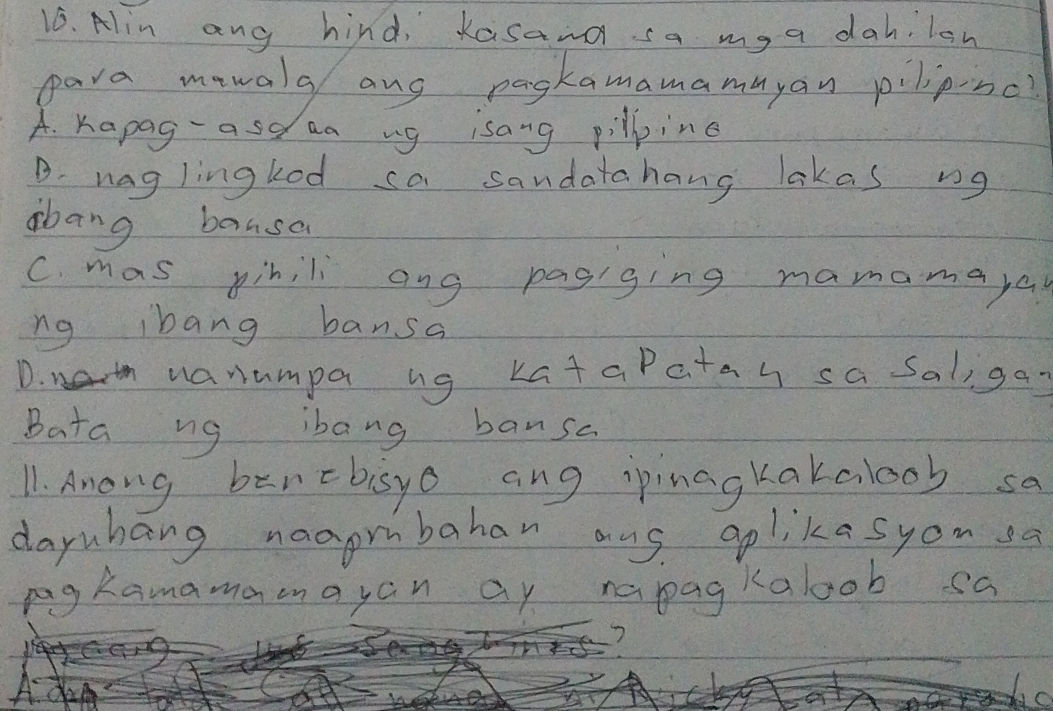 10. Alin ang hindi kasama sa mga dahilan
para mawala ang pagkamamamuyan pilipino?
A. Kapag-asawa ng isang pilipino
B. naglingkod sa sandatahang lakas ng
ibang bansa
C. mas pinili ang pagiging mamamayan
ng ibang bansa
D. nanumpa ng katapatan sa Saligan
Bata ng ibang bansa
11. Anong benebisyo ang ipinagkakaloob sa
dayuhang naaprubahan ang aplikasyon sa
pagkamamamayan ay napagkaloob sa
?